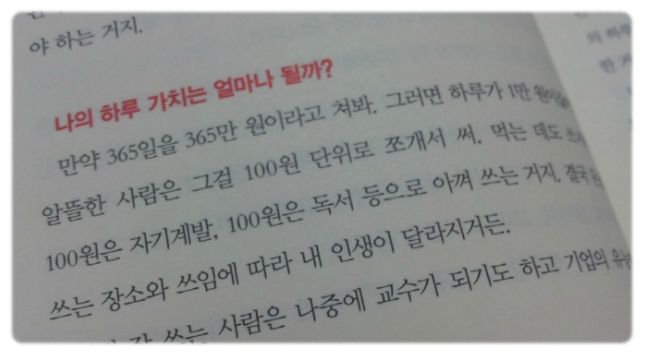 야 하는 거지.
나의 하루 가치는 얼마나 될까?
만약 365일을 365만 원이라고 쳐봐. 그러면 하루가 1만
알뜰한 사람은 그걸 100원 단위로 쪼개서 써. 먹는 데도
100원은 자기계발, 100원은 독서 등으로 아껴 쓰는 거지. 결국
쓰는 장소와 쓰임에 따라 내 인생이 달라지거든.
잘 쓰는 사람은 나중에 교수가 되기도 하고 기업의
의 하루
한